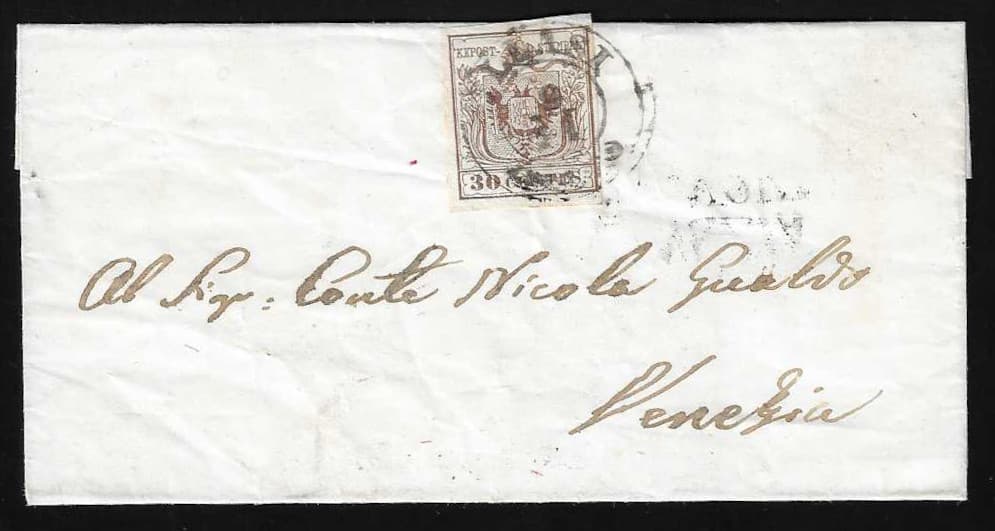 KKPOST-STEMPEL
30 CENTES
Al Sigr: Conte Nicola Gualdo
Venezia